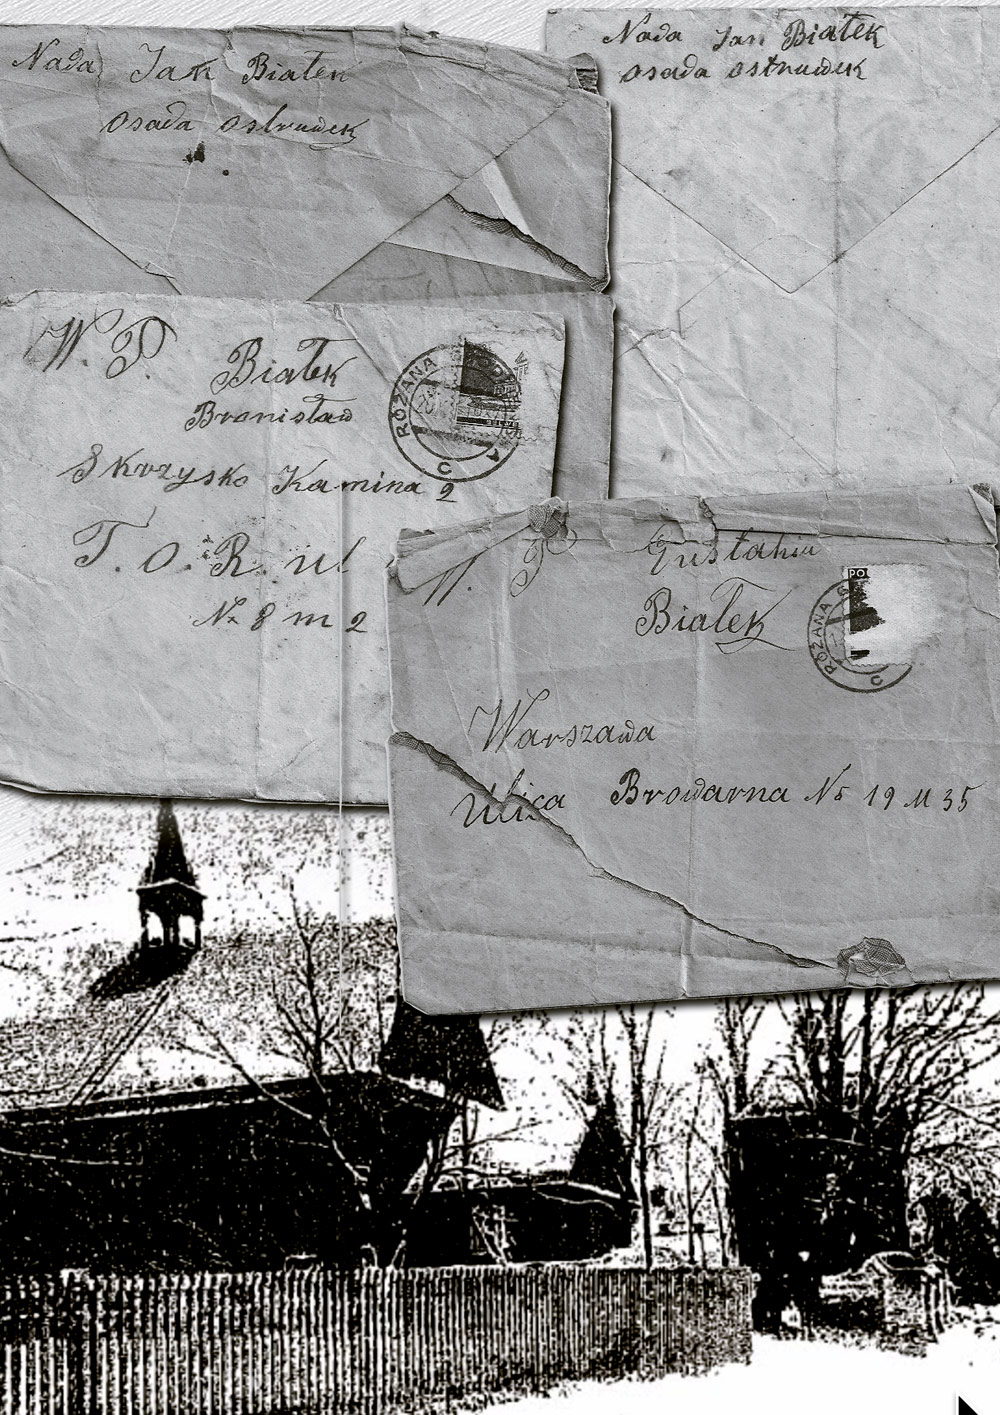 Nada Jan Białek
osada ostruwek
Nada Jan Białek
osada ostruwek
W. P.
Białek
Bronisław
Skrzysko Kamina 2
T. O. R. ul
№ 8 m 2
RÓŻANA
C
A
W. P. Gustahiu
Białek
PO
RÓŻANA
C
Warszawa
Ulica Browarna № 19 M 35